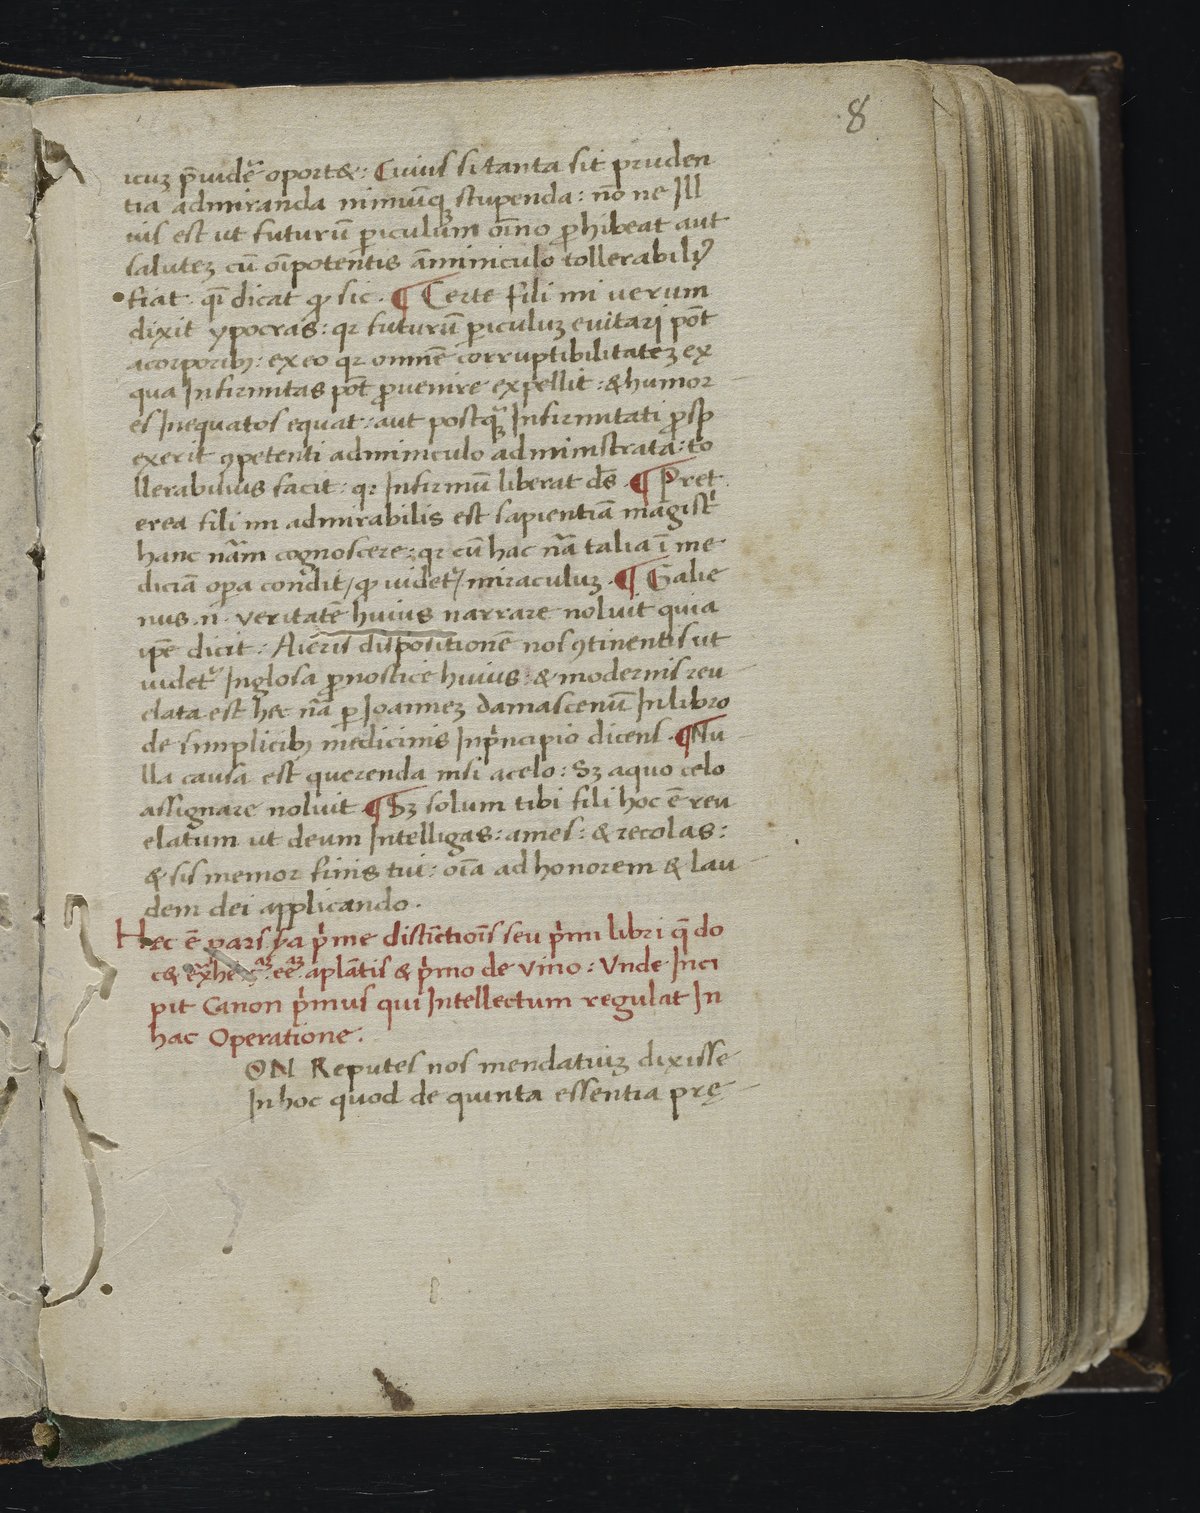 8
icuꝫ p̄uidẽ oport&: Cuius si tanta sit pruden
tia admiranda nimiũqꝫ stupenda: nõ ne Ill
ius est ut futurũ ꝑiculum oĩno ꝓhibeat aut
saluteꝫ cũ oĩpotentis ãminiculo tollerabiliꝰ
fiat. qĩ dicat ꝙ sic. ¶ Certe fili mi uerum
dixit ypocras: qꝛ futurũ ꝑiculuꝫ euitari põt
acorporibꝫ: ex eo qꝛ omnẽ corruptibilitateꝫ ex
qua Infirmitas põt ꝓuenire expellit: & humor
es Inequatos equat: aut postqꝫ Infirmitati ꝓsp
exerit ꝯpetenti adminiculo administrata: to
llerabilius facit: qꝛ Infirmũ liberat ds̃. ¶ Pret
erea fili mi admirabilis est sapientiã magist̃
hanc nãm cognoscere: qꝛ cũ hac nã talia ĩ me
diciã oꝑa condit, ꝙ uidet᷑ miraculuꝫ. ¶ Galie
nus .n. ueritatẽ huius narrare noluit quia
ip̃e dicit: Aieris dispositionẽ nos ꝯtinentis ut
uidet᷑ Inglosa ꝓnostice huius: & modernis reu
elata est hec nã ꝑ Joanneꝫ damascenũ In libro
de simplicibꝫ medicinis In p̃ncipio dicens. ¶ Nu
lla causa est querenda nisi acelo: Sꝫ aquo celo
assignare noluit ¶ Sꝫ solum tibi fili hoc ẽ reu
elatum ut deum Intelligas: ames: & recolas:
& sis memor finis tui: oĩa ad honorem & lau
dem dei applicando.
Hec ẽ pars p̃a p̃me distĩctiõis seu p̃mi libri q̃ do
c& aplãtis & p̃mo de uino: Vnde Inci
pit Canon p̃mus qui Intellectum regulat In
hac Operatione.
ON Reputes nos mendatiuꝫ dixisse
In hoc quod de quinta essentia prę